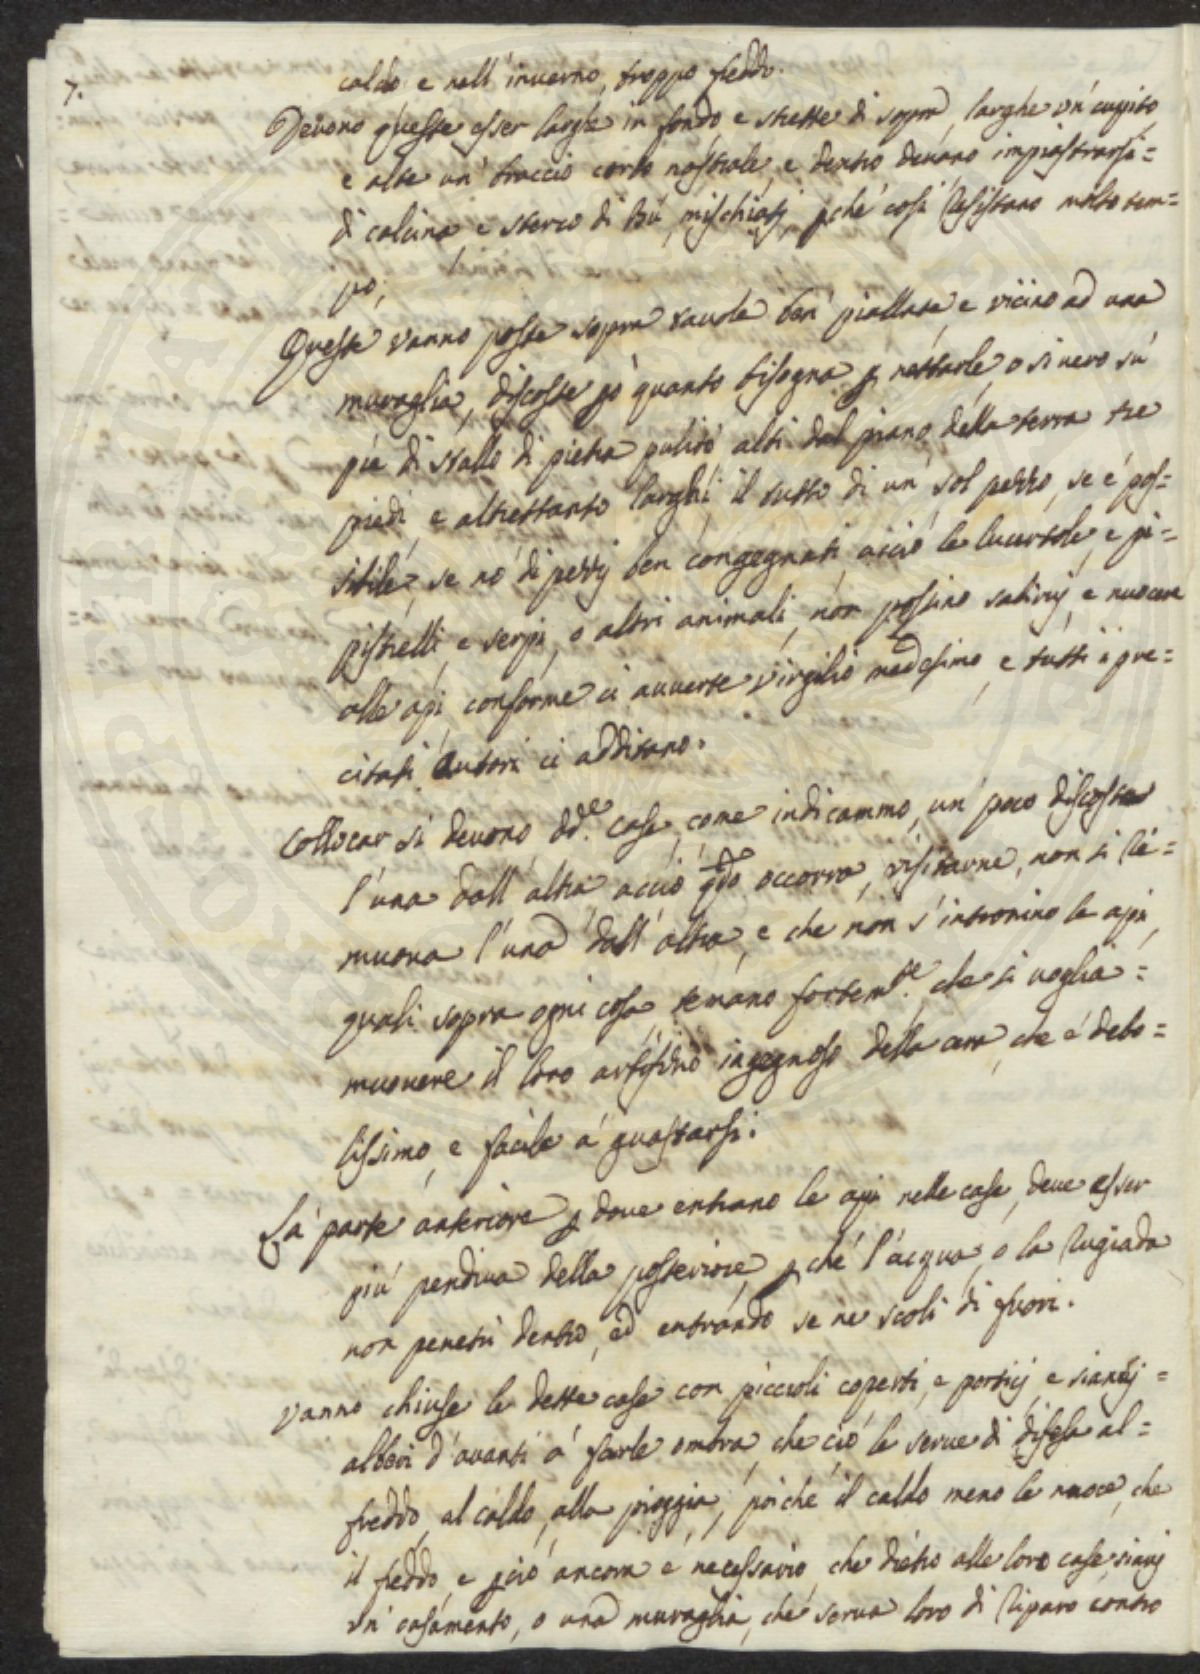 7.
caldo e nell' inuerno, troppo freddo.
Deuono queste esser larghe in fondo e strette di sopra, larghe un' cupito,
e alte un' braccio corto nostrale, e dentro deuano impiastrarsi=
di calcina e sterco di Bù, mischiati, pché così resistano molto tem=
po;
Queste vanno poste sopra tauole ben' piallate e vicino ad una
muraglia, discoste pò quanto bisogna p nettarle, o sivero sù
piè di stallo di pietra pulito alti dal piano della terra tre
piedi, e altrettanto larghi, il tutto di un' sol pezzo, se è pos=
sibile, se nò di pezzj ben congegnati, acciò le lucertole, e pi=
pistrelli, e serpi, o altri animali, non possino salirvj, e nuocere
alle api, conforme ci auuerte Virgilio medesimo, e tutti i pre=
citati Autori ci additano.
Collocar si deuono dd.e case, come indicammo, un' poco discoste
l'una dall' altra, acciò qdo occorra, visitarne, non si ri=
muova l'una dall' altra, e che non s'intronino le api,
quali sopra ogni cosa temano fortem.te che si voglia=
muouere il loro artifizio ingegnoso della cera, che è debo=
lissimo, e facile a guastarsi.
La parte anteriore p doue entrano le api nelle case, deue esser
più pendiva della posteriore, pchè l'acqua, o la rugiada
non penetri dentro, ed entrando se ne scoli di fuori.
Vanno chiuse le dette case con piccioli coperti, e porticj, e sianvj=
alberi d'auanti a farle ombra, che ciò le serue di difesa al=
freddo, al caldo, alla pioggia, poichè il caldo meno le nuoce, che
il freddo, e pciò ancora è necessario, che dietro alle loro case, sianvj
un' casamento, o una muraglia, che serva loro di riparo contro